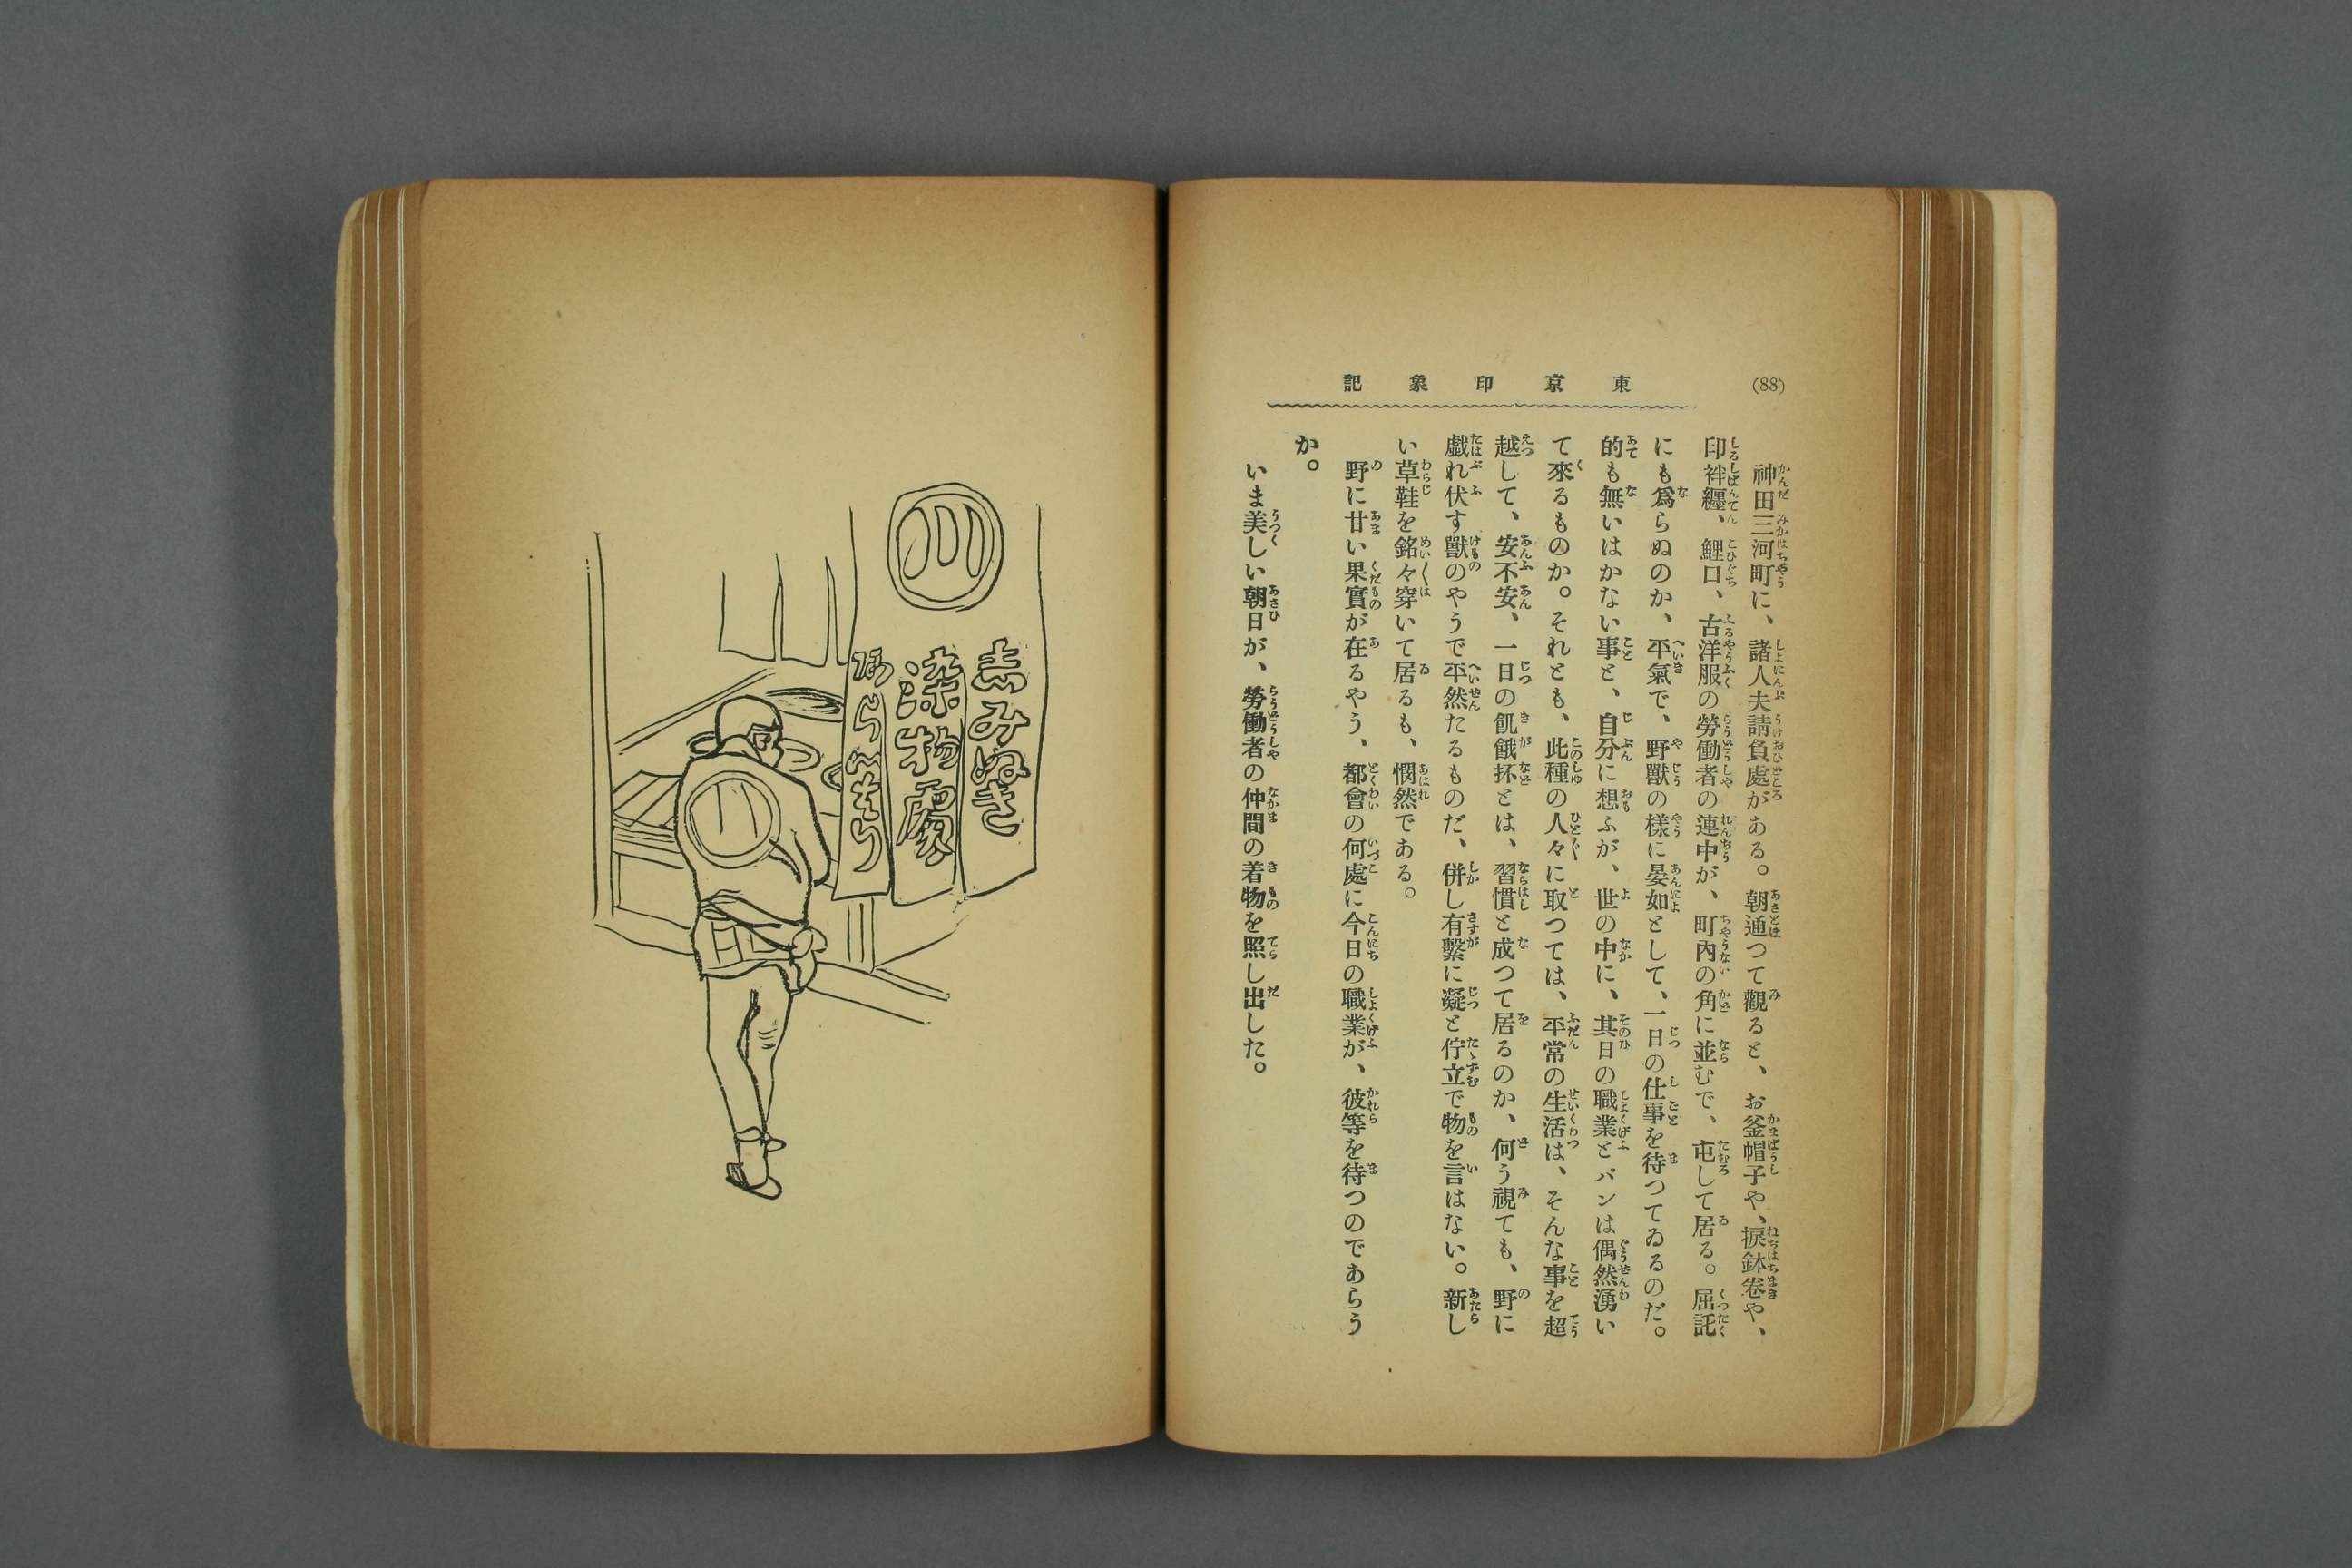 (88)
東京印象記
神田三河町に、諸人夫請負處がある。朝通つて觀ると、お釜帽子や、捩鉢卷や、
印袢纒、鯉口、古洋服の勞働者の連中が、町內の角に並むで、屯して居る。屈託
にも爲らぬのか、平氣で、野獸の樣に晏如として、一日の仕事を待つてゐるのだ。
的も無いはかない事と、自分に想ふが、世の中に、其日の職業とパンは偶然湧い
て來るものか。それとも、此種の人々に取つては、平常の生活は、そんな事を超
越して、安不安、一日の飢餓抔とは、習慣と成つて居るのか、何う視ても、野に
戲れ伏す獸のやうで平然たるものだ、併し有繫に凝と佇立で物を言はない。新し
い草鞋を銘々穿いて居るも、憫然である。
野に甘い果實が在るやう、都會の何處に今日の職業が、彼等を待つのであらう
か。
いま美しい朝日が、勞働者の仲間の着物を照し出した。
川
志みぬき
染物處
あらいはり